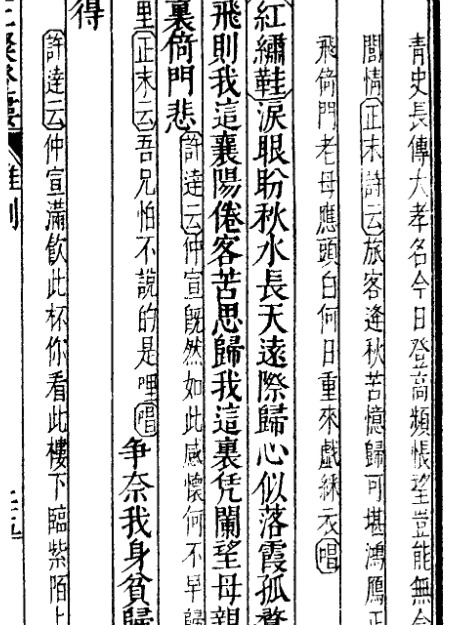 青史長傳大孝名今日登高頻悵望豈能無今
閻情正末詩云旅客逢秋苦憶歸可堪鴻鴈正
飛倚門老母應頭白何日重來戲綵衣唱
紅繡鞋淚眼盻秋水長天遠際歸心似落霞孤鶩
飛則我這襄陽倦客苦思歸我這裏凭闌望母親
裏倚門悲許達云仲宣旣然如此感懷何不早歸
里正末云吾兄怕不說的是哩唱爭奈我身貧歸
得
許達云仲宣滿飲此杯你看此樓下臨紫陌上
王粲登樓 雜劇